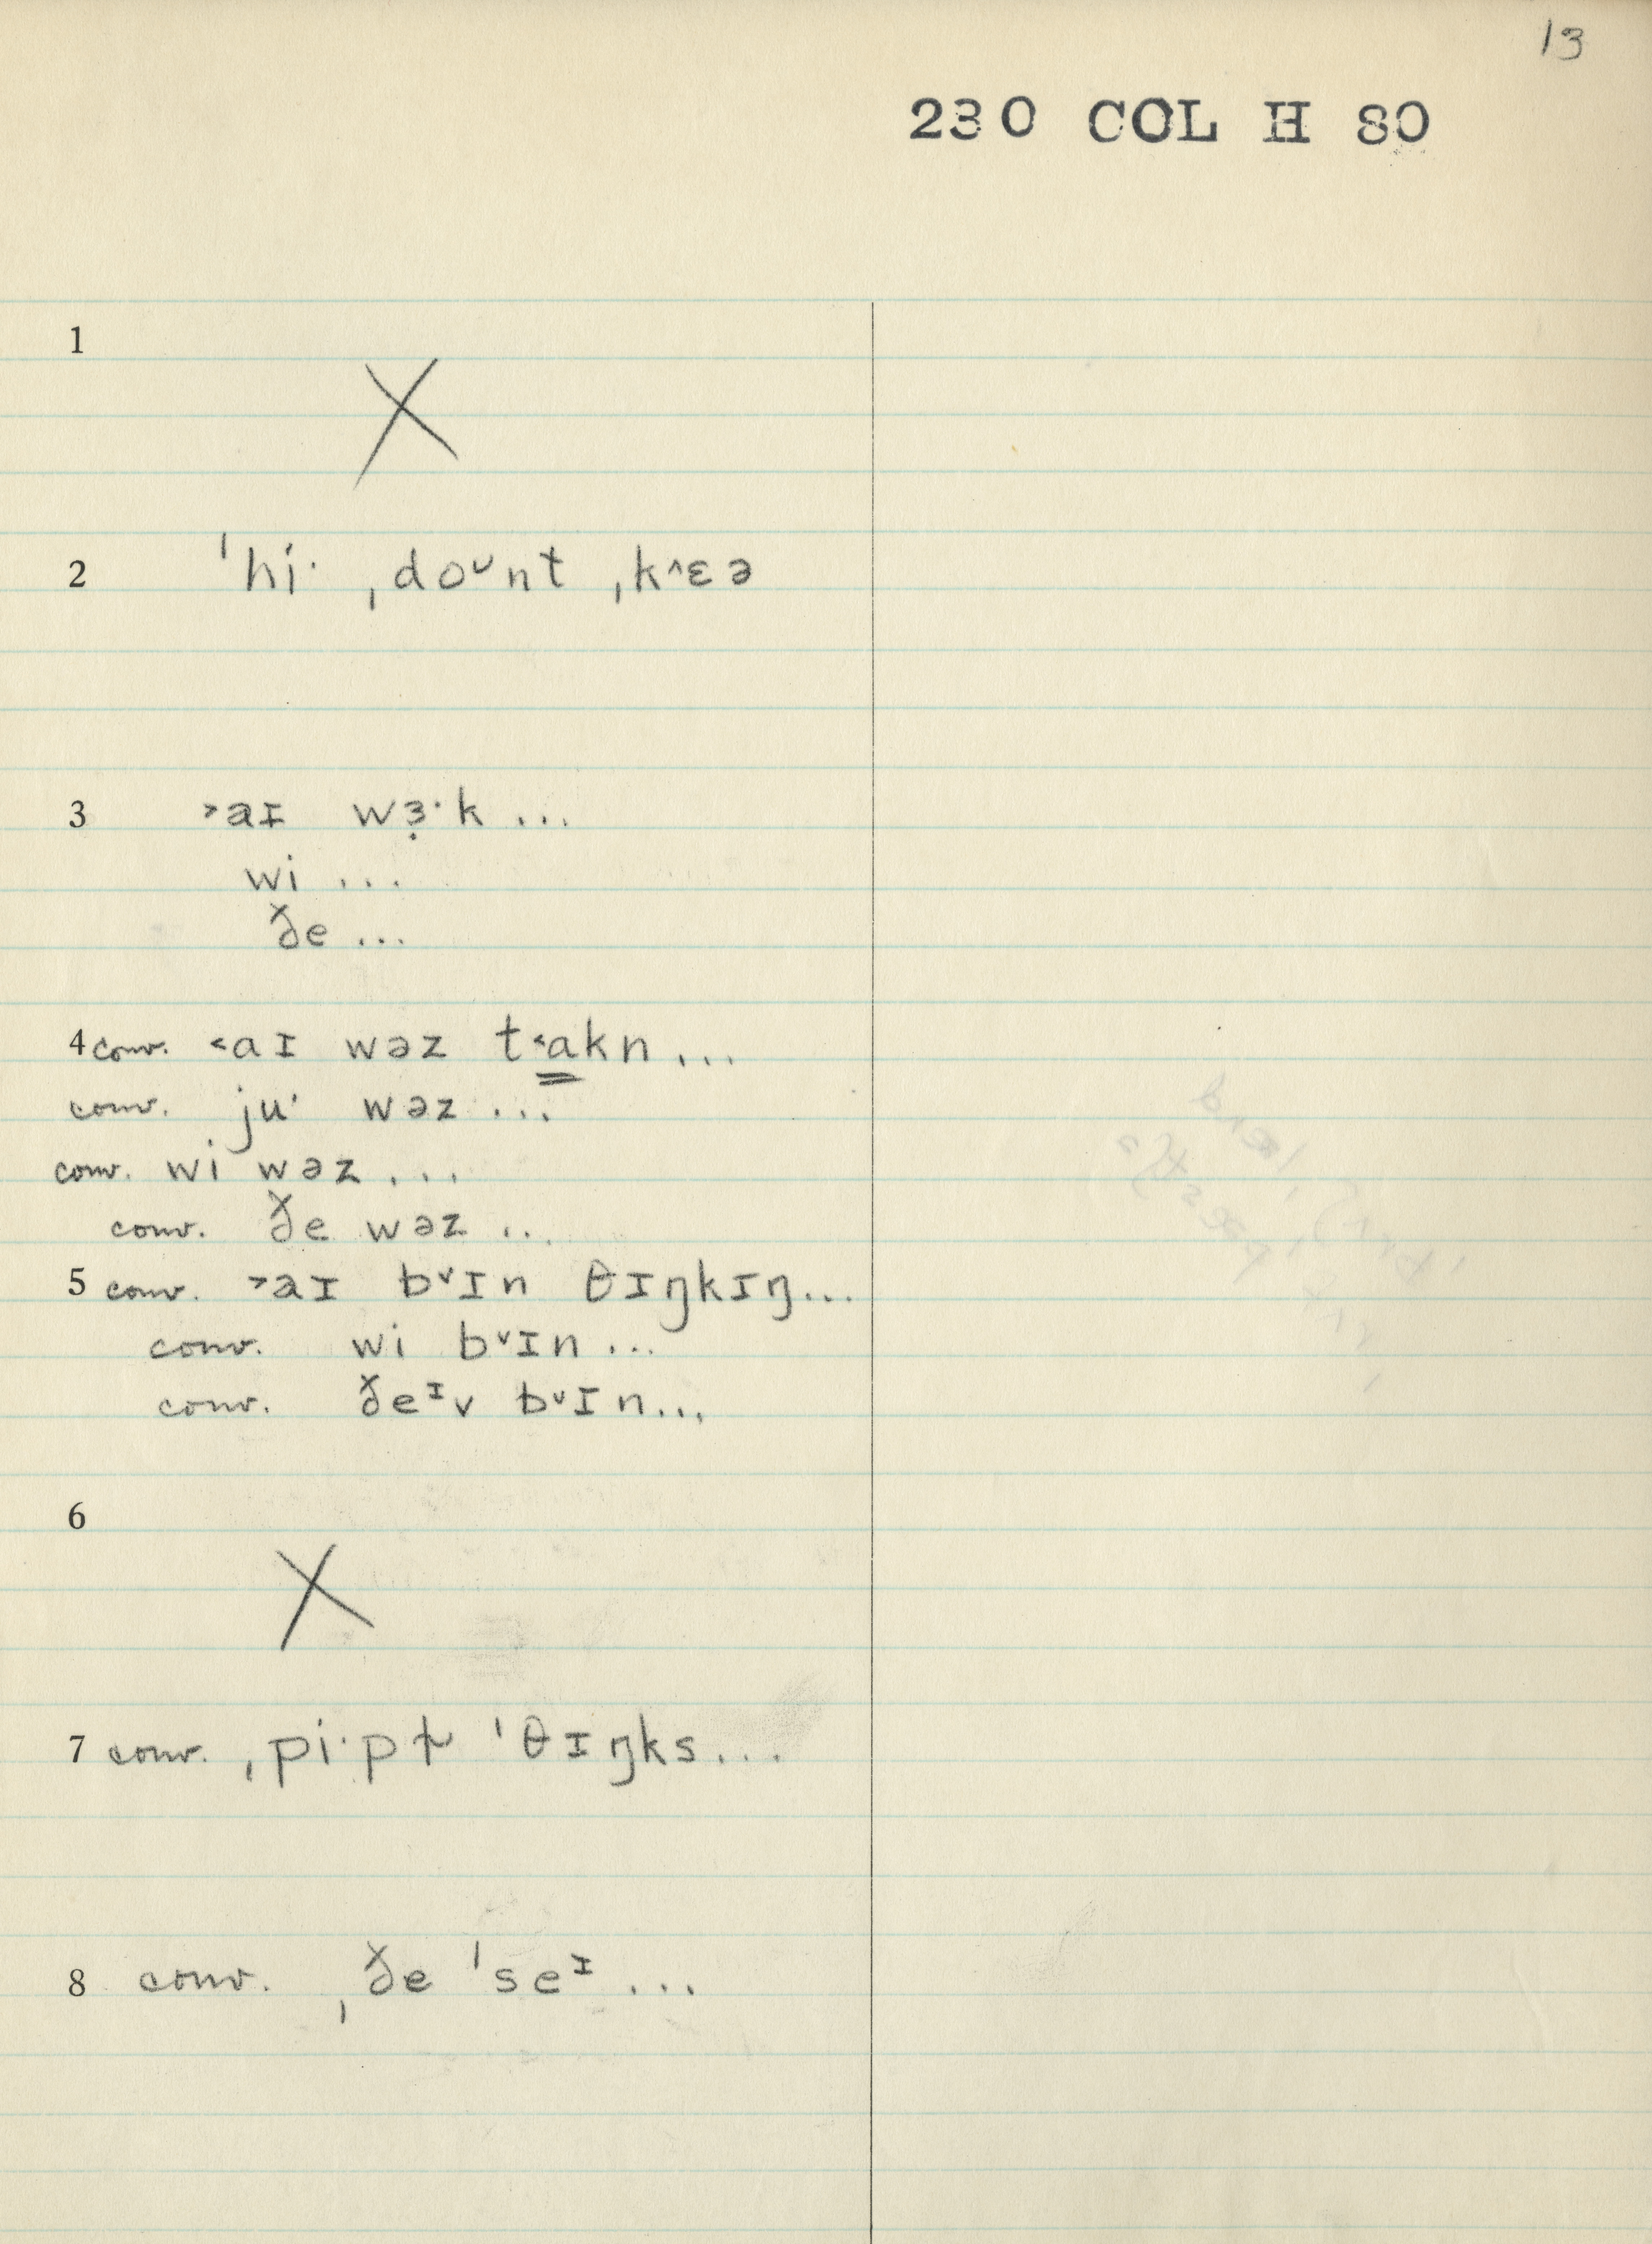 13
230 COL H 80
1
X
2 ˈhi· ˌdoᴜnt ˌk^ɛə
3 >aɪ wɜ̣·k ...
wi ...
ðe ...
4 conv. <aɪ wəz t<a̳kn ...
conv. ju· wəz ...
conv. wi wəz ...
conv. ðe wəz ..
5 conv. >aɪ b˅ɪn θɪŋkɪŋ...
conv. wi b˅ɪn ...
conv. ðeᶦv b˅ɪn...
6
X
7 conv. ˌpi·pɫ ˈθɪŋks...
8 conv. ˌðe ˈseᶦ ...